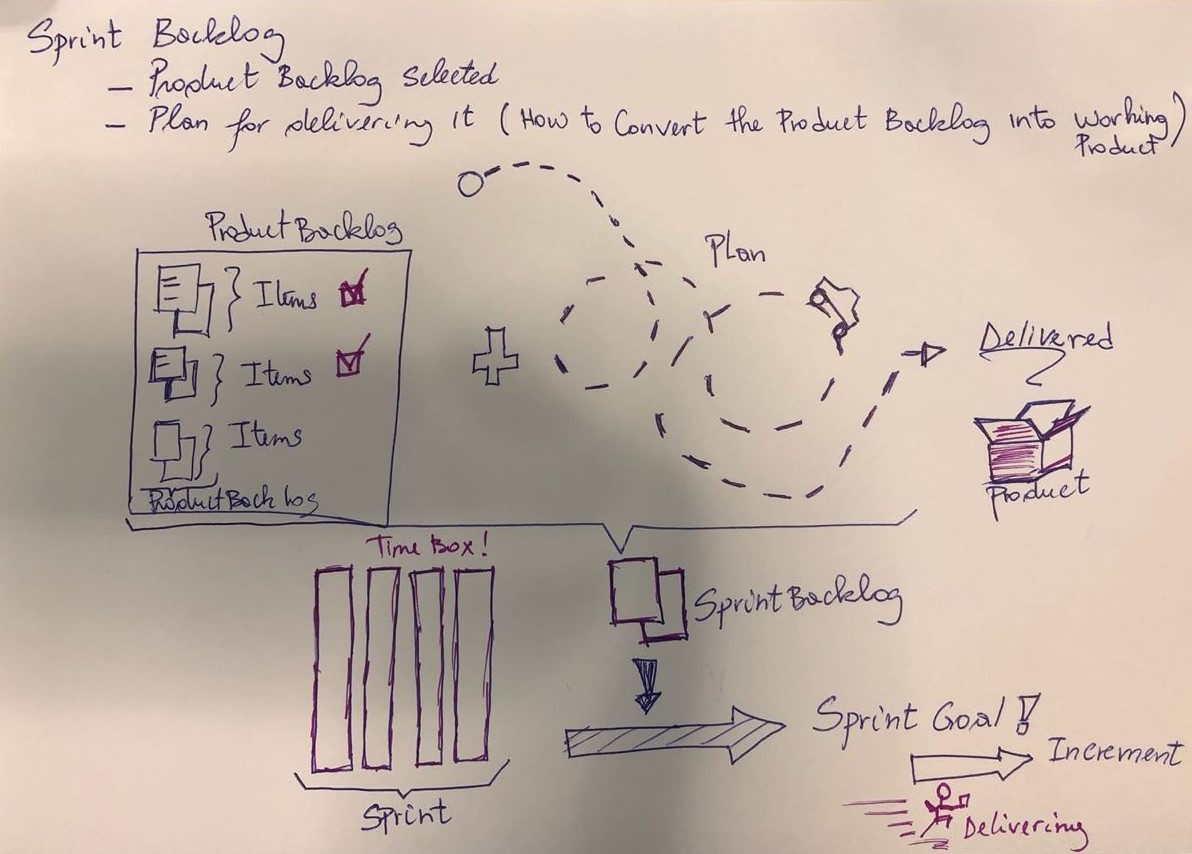 Sprint Backlog
– Product Backlog Selected
– Plan for delivering it (How to Convert the Product Backlog into Working Product)
Product Backlog
Items
Items
Items
Product Backlog
Plan
Delivered
Product
Time Box!
Sprint
Sprint Backlog
Sprint Goal!
Increment
Delivering